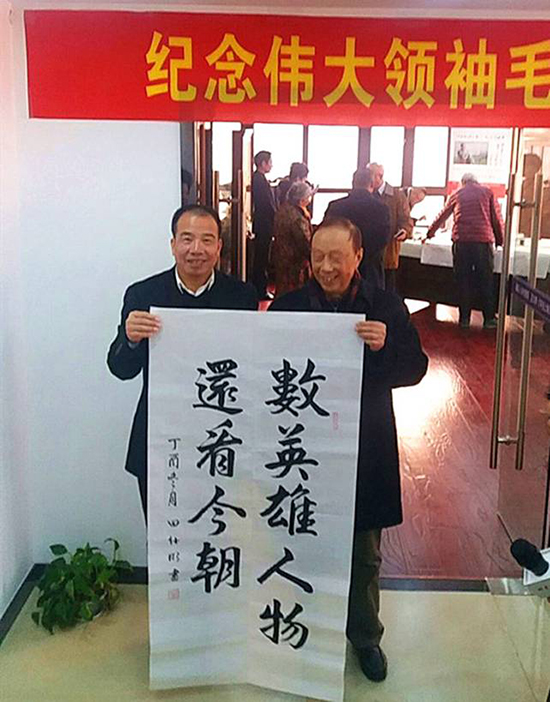 纪念伟大领袖毛
數英雄人物
還看今朝
丁酉冬月 田
書